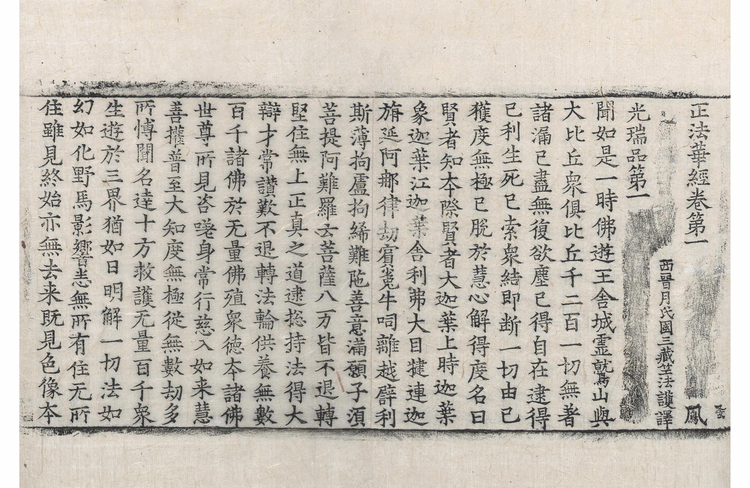 正法華經卷第一 鳳
西晉月氏國三藏竺法護譯
光瑞品第一
聞如是一時佛遊王舍城靈鷲山與
大比丘衆俱比丘千二百一切無著
諸漏已盡無復欲塵已得自在逮得
己利生死已索衆結即断一切由已
獲度無極已脫於慧心解得度名曰
賢者知本際賢者大迦葉上時迦葉
象迦葉江迦葉舍利弗大目揵連迦
旃延阿那律劫賔㝹牛呞離越譬利
斯薄拘盧拘絺難陁善意滿願子湏
菩提阿難羅云菩薩八万皆不退轉
堅住無上正真之道逮揔持法得大
辯才常讃歎不退轉法輪供養無數
百千諸佛於无量佛殖衆德本諸佛
世尊所見咨嗟身常行慈入如来慧
善權普至大知度無極從無數劫多
所博聞名達十方救護无量百千衆
生遊於三界猶如日明解一切法如
幻如化野馬影響悉無所有住无所
住雖見終始亦無去来既見色像本